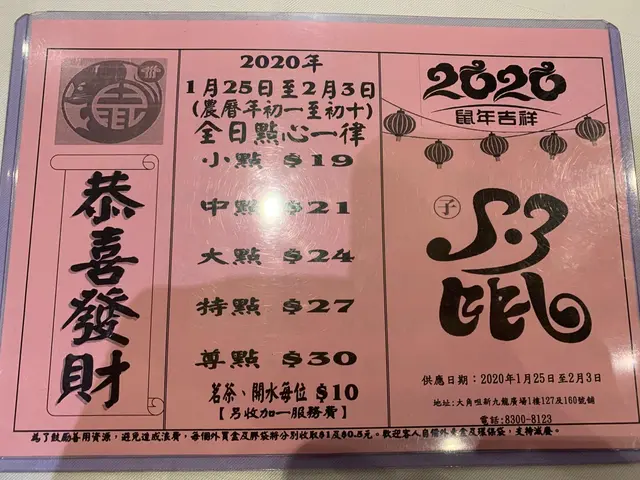 恭喜發財
2020年
1月25日至2月3日
(農曆年初一至初十)
全日點心一律
小點 $19
中點 $21
大點 $24
特點 $27
尊點 $30
茗茶、開水每位 $10
【另收加一服務費】
2020
鼠年吉祥
子
鼠
供應日期：2020年1月25日至2月3日
地址：大角咀新九龍廣場1樓127及160號舖
電話：8300-8123
為了鼓勵善用資源，避免造成浪費，每個外賣盒及膠袋將分別收取$1及$0.5元。歡迎客人自備外賣盒及環保袋，支持減廢。